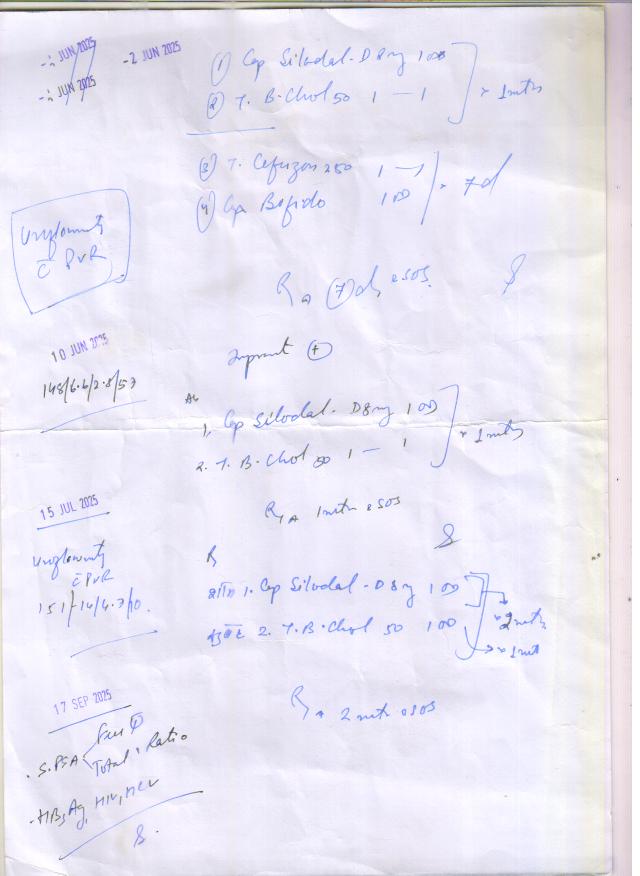 -2 JUN 2025
-2 JUN 2025
-2 JUN 2025
① Cap Silodal-D 8mg 1 OD
② T. B-Chol 50 1 — 1
x 1 mth
③ T. Cefuzon 250 1 — 1
④ Cap Bifido 1 OD
x 7d
Uroflowmetry
c̄ PVR
R/A ⑦ d, SOS.
10 JUN 2025
148/6.6/2.8/57
Improvement ⊕
1. Cap Silodal-D 8mg 1 OD
2. T. B-Chol 50 1 — 1
x 1 mth
R/A 1 mth SOS
15 JUL 2025
Uroflowmetry
c̄ PVR
151/14/4.7/0.
R
1. Cap Silodal-D 8mg 1 OD
2. T. B-Chol 50 1 OD
x 2 mths
x 1 mth
R/A 2 mth SOS
17 SEP 2025
. S.PSA
Free
Total, Ratio
- HBsAg, HIV, HCV